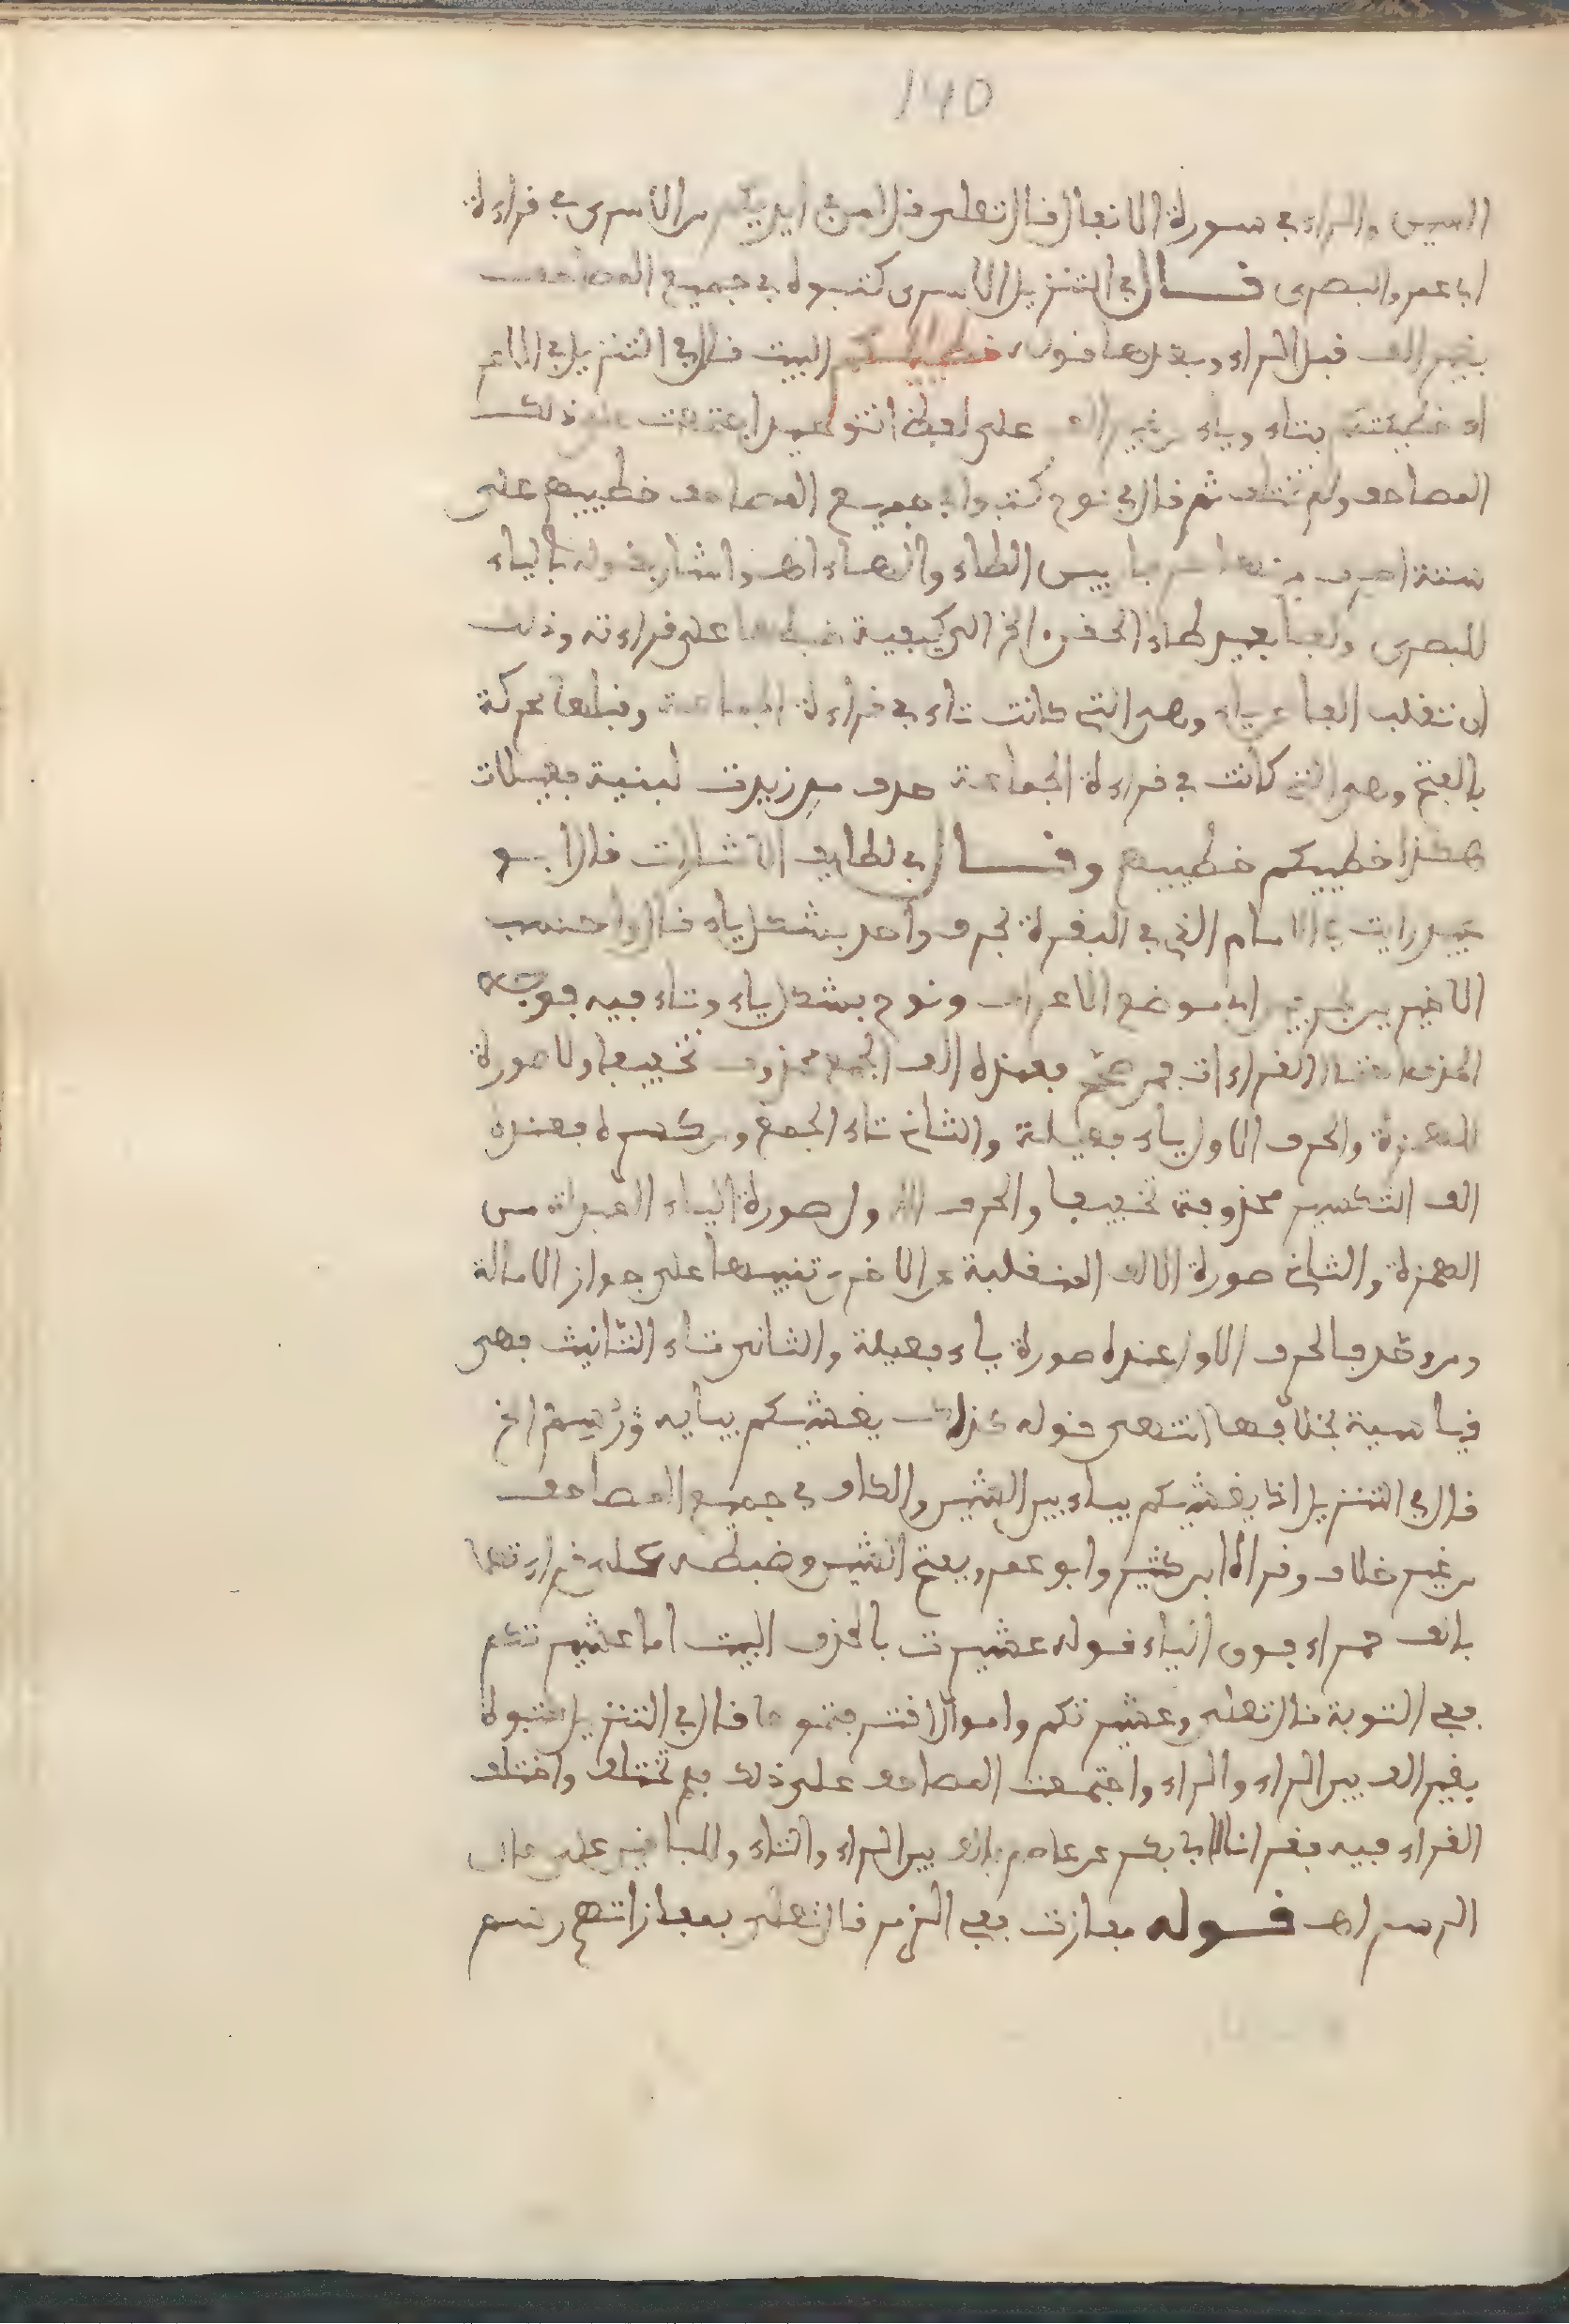 140
السين والراء في سورة الانفال قال تعلى قل لمن في ايديكم من الاسرى في قراءة
ابي عمرو البصرى قال في التنزيل الاسرى كتبوه في جميع المصاحف
بغير الف قبل الراء وبعدها قوله خطييكم البيت قال في التنزيل في الاعر
اف خطيئتكم بتاء وياء من غير الف على لفظ التوحيد اجتمعت على ذلك
المصاحف ولم تختلف ثم قال في نوح كتبوا في جميع المصاحف خطييهم على
ستة احرف من ما بين الطاء والهاء اهـ واشار بقوله بالياء
للبصرى والفا بعيد طاء اخضره الخ الى كيفية ضبطها على قراءته وذلك
ان تقلب الفا ياء وهى التى كانت تاء في قراءة الجماعة وقبلها حركة
بالفتح وهى التى كانت في قراءة الجماعة حرف مد زيدت لبنية فعيلات
هكذا خطييكم خطييهم وقال في لطايف الاشارات قال ابو
عبيد رايت في الامام التى في البقرة بحرف واحد بشكل ياء قال واحسب
الاخيرين بحرفين اى موضع الاعراف ونوح بشكل ياء وتاء فيه فوجه
الحذف احتمال القراءات فمن صحح فعنده الف الجمع محذوف تخفيفا ولا صورة
للهمزة والحرف الاول ياء فعيلة والثانى تاء الجمع ومن كسره فعنده
الف التكسير محذوفة تخفيفا والحرف الاول صورة الياء المبدلة من
الهمزة والثانى صورة الالف المنقلبة عن الاخرى تنبيها على جواز الامالة
ومن وحد فالحرف الاول عنده صورة ياء فعيلة والثانى تاء التانيث فهى
قياسية بخلافها انتهى قوله كذلك يغشيكم بيايه ورسم الخ
قال في التنزيل اذ يغشيكم بياء بين الشين والكاف في جميع المصاحف
من غير خلاف وقراه ابن كثير وابو عمرو بفتح الشين وضبطه على قراءتهما
بالف حمراء فوق الياء قوله عشيرت بالحذف البيت اما عشيرتكم
ففى التوبة قال تعلى وعشيرتكم واموال اقترفتموها قال في التنزيل كتبوه
بغير الف بين الراء والراء واجتمعت المصاحف على ذلك فلم تختلف واختلف
القراء فيه فقرانا لابى بكر عن عاصم بالف بين الراء والتاء وللباقين على حال
الرسم اهـ قوله مفازت ففى الزمر قال تعلى بمفازاتهم رسم